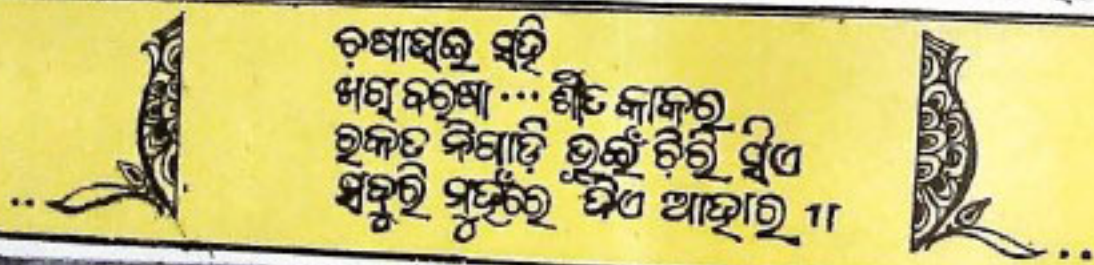 ଚଷାମୂଲ ସହି
ଖରା ବରଷା ... ଶୀତ କାକର
ରକତ ନିଗାଡ଼ି ଭୂଇଁ ଚିରି ସିଏ
ସବୁରି ମୁହଁରେ ଦିଏ ଆହାର ॥